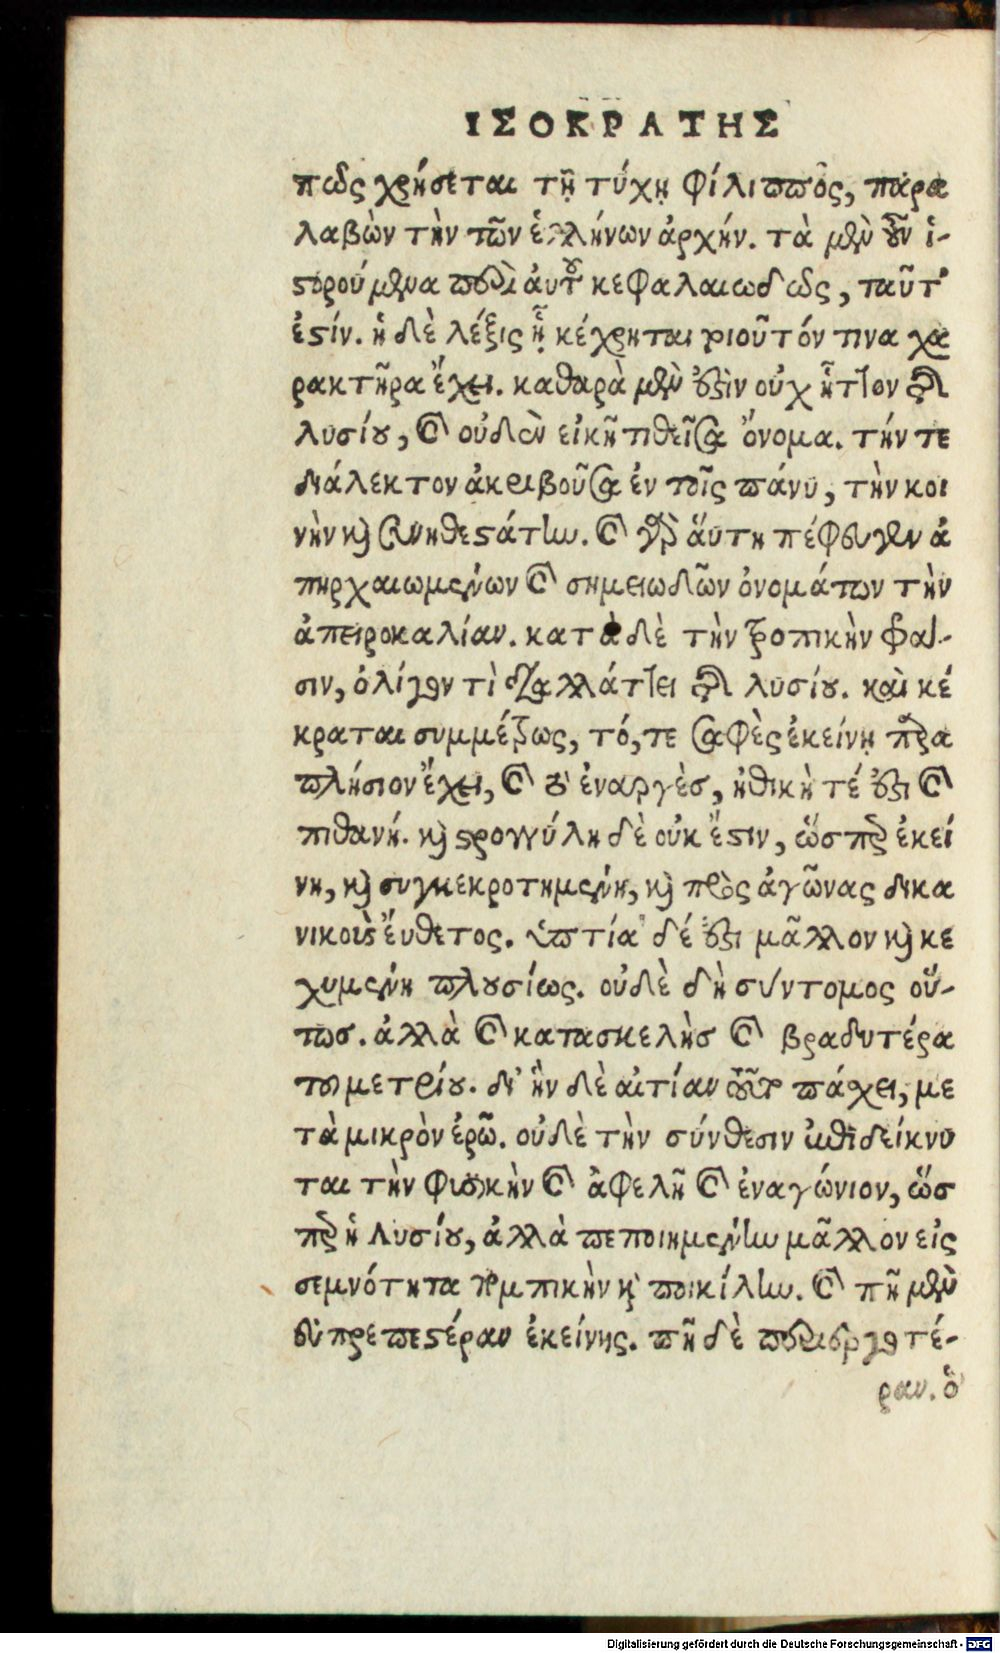 ΙΣΟΚΡΑΤΗΣ
πῶς χρήσεται τῇ τύχῃ φίλιππος, παρα
λαβὼν τὴν τῶν ἑλλήνων ἀρχήν. τὰ μὲν οὖν ἱ-
στορούμενα περὶ αὐτοῦ κεφαλαιωδῶς, ταῦτ'
ἐστίν. ἡ δὲ λέξις ᾗ κέχρηται τοιοῦτόν τινα χα
ρακτῆρα ἔχει. καθαρὰ μὲν ἐστὶν οὐχ ἧττον τῆς
λυσίου, καὶ οὐδὲν εἰκῆ τιθεῖσα ὄνομα. τήν τε
διάλεκτον ἀκριβοῦσα ἐν τοῖς πάνυ, τὴν κοι
νὴν καὶ συνηθεστάτην. καὶ γὰρ αὕτη πέφευγεν ἀ
πηρχαιωμένων καὶ σημειωδῶν ὀνομάτων τὴν
ἀπειροκαλίαν. κατὰ δὲ τὴν τροπικὴν φρά-
σιν, ὀλίγον τὶ διαλλάττει τῆς λυσίου. καὶ κέ
κραται συμμέτρως, τό, τε σαφὲς ἐκείνῃ παρα
πλήσιον ἔχει, καὶ τὸ ἐναργὲς, ἠθικὴ τέ ἐστι καὶ
πιθανή. καὶ στρογγύλη δὲ οὐκ ἔστιν, ὥσπερ ἐκεί
νη, καὶ συγκεκροτημένη, καὶ πρὸς ἀγῶνας δικα
νικοὺς ἔυθετος. ὑπτία δέ ἐστι μᾶλλον καὶ κε
χυμένη πλουσίως. οὐδὲ δὴ σύντομος οὕ-
τως. ἀλλὰ καὶ κατασκελὴς καὶ βραδυτέρα
τοῦ μετρίου. δι' ἣν δὲ αἰτίαν τοῦτο πάσχει, με
τὰ μικρὸν ἐρῶ. οὐδὲ τὴν σύνθεσιν ἐπιδείκνυ
ται τὴν φυσικὴν καὶ ἀφελῆ καὶ ἐναγώνιον, ὥσ
περ ἡ λυσίου, ἀλλὰ πεποιημένην μᾶλλον εἰς
σεμνότητα πομπικὴν καὶ ποικίλην. καὶ πῆ μὲν
εὐπρεπεστέραν ἐκείνης. πῆ δὲ περιεργοτέ-
ραν. ὁ
Digitalisierung gefördert durch die Deutsche Forschungsgemeinschaft - DFG